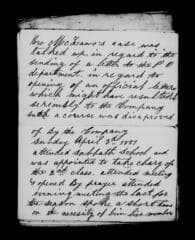 Bro McLean's case was
talked up in regard to the
sending of a letter to the P O
department, in regard to
opening of an official letter
which might have resulted
seriously to the Company
such a course was disapproved
of By the Company
Sunday April 3rd 1887
attended Sabbath School and
was appointed to take charge of
the 2nd class. attended meeting
& opened by prayer attended
evening meeting the last for
the season spoke a short time
on the necessity of